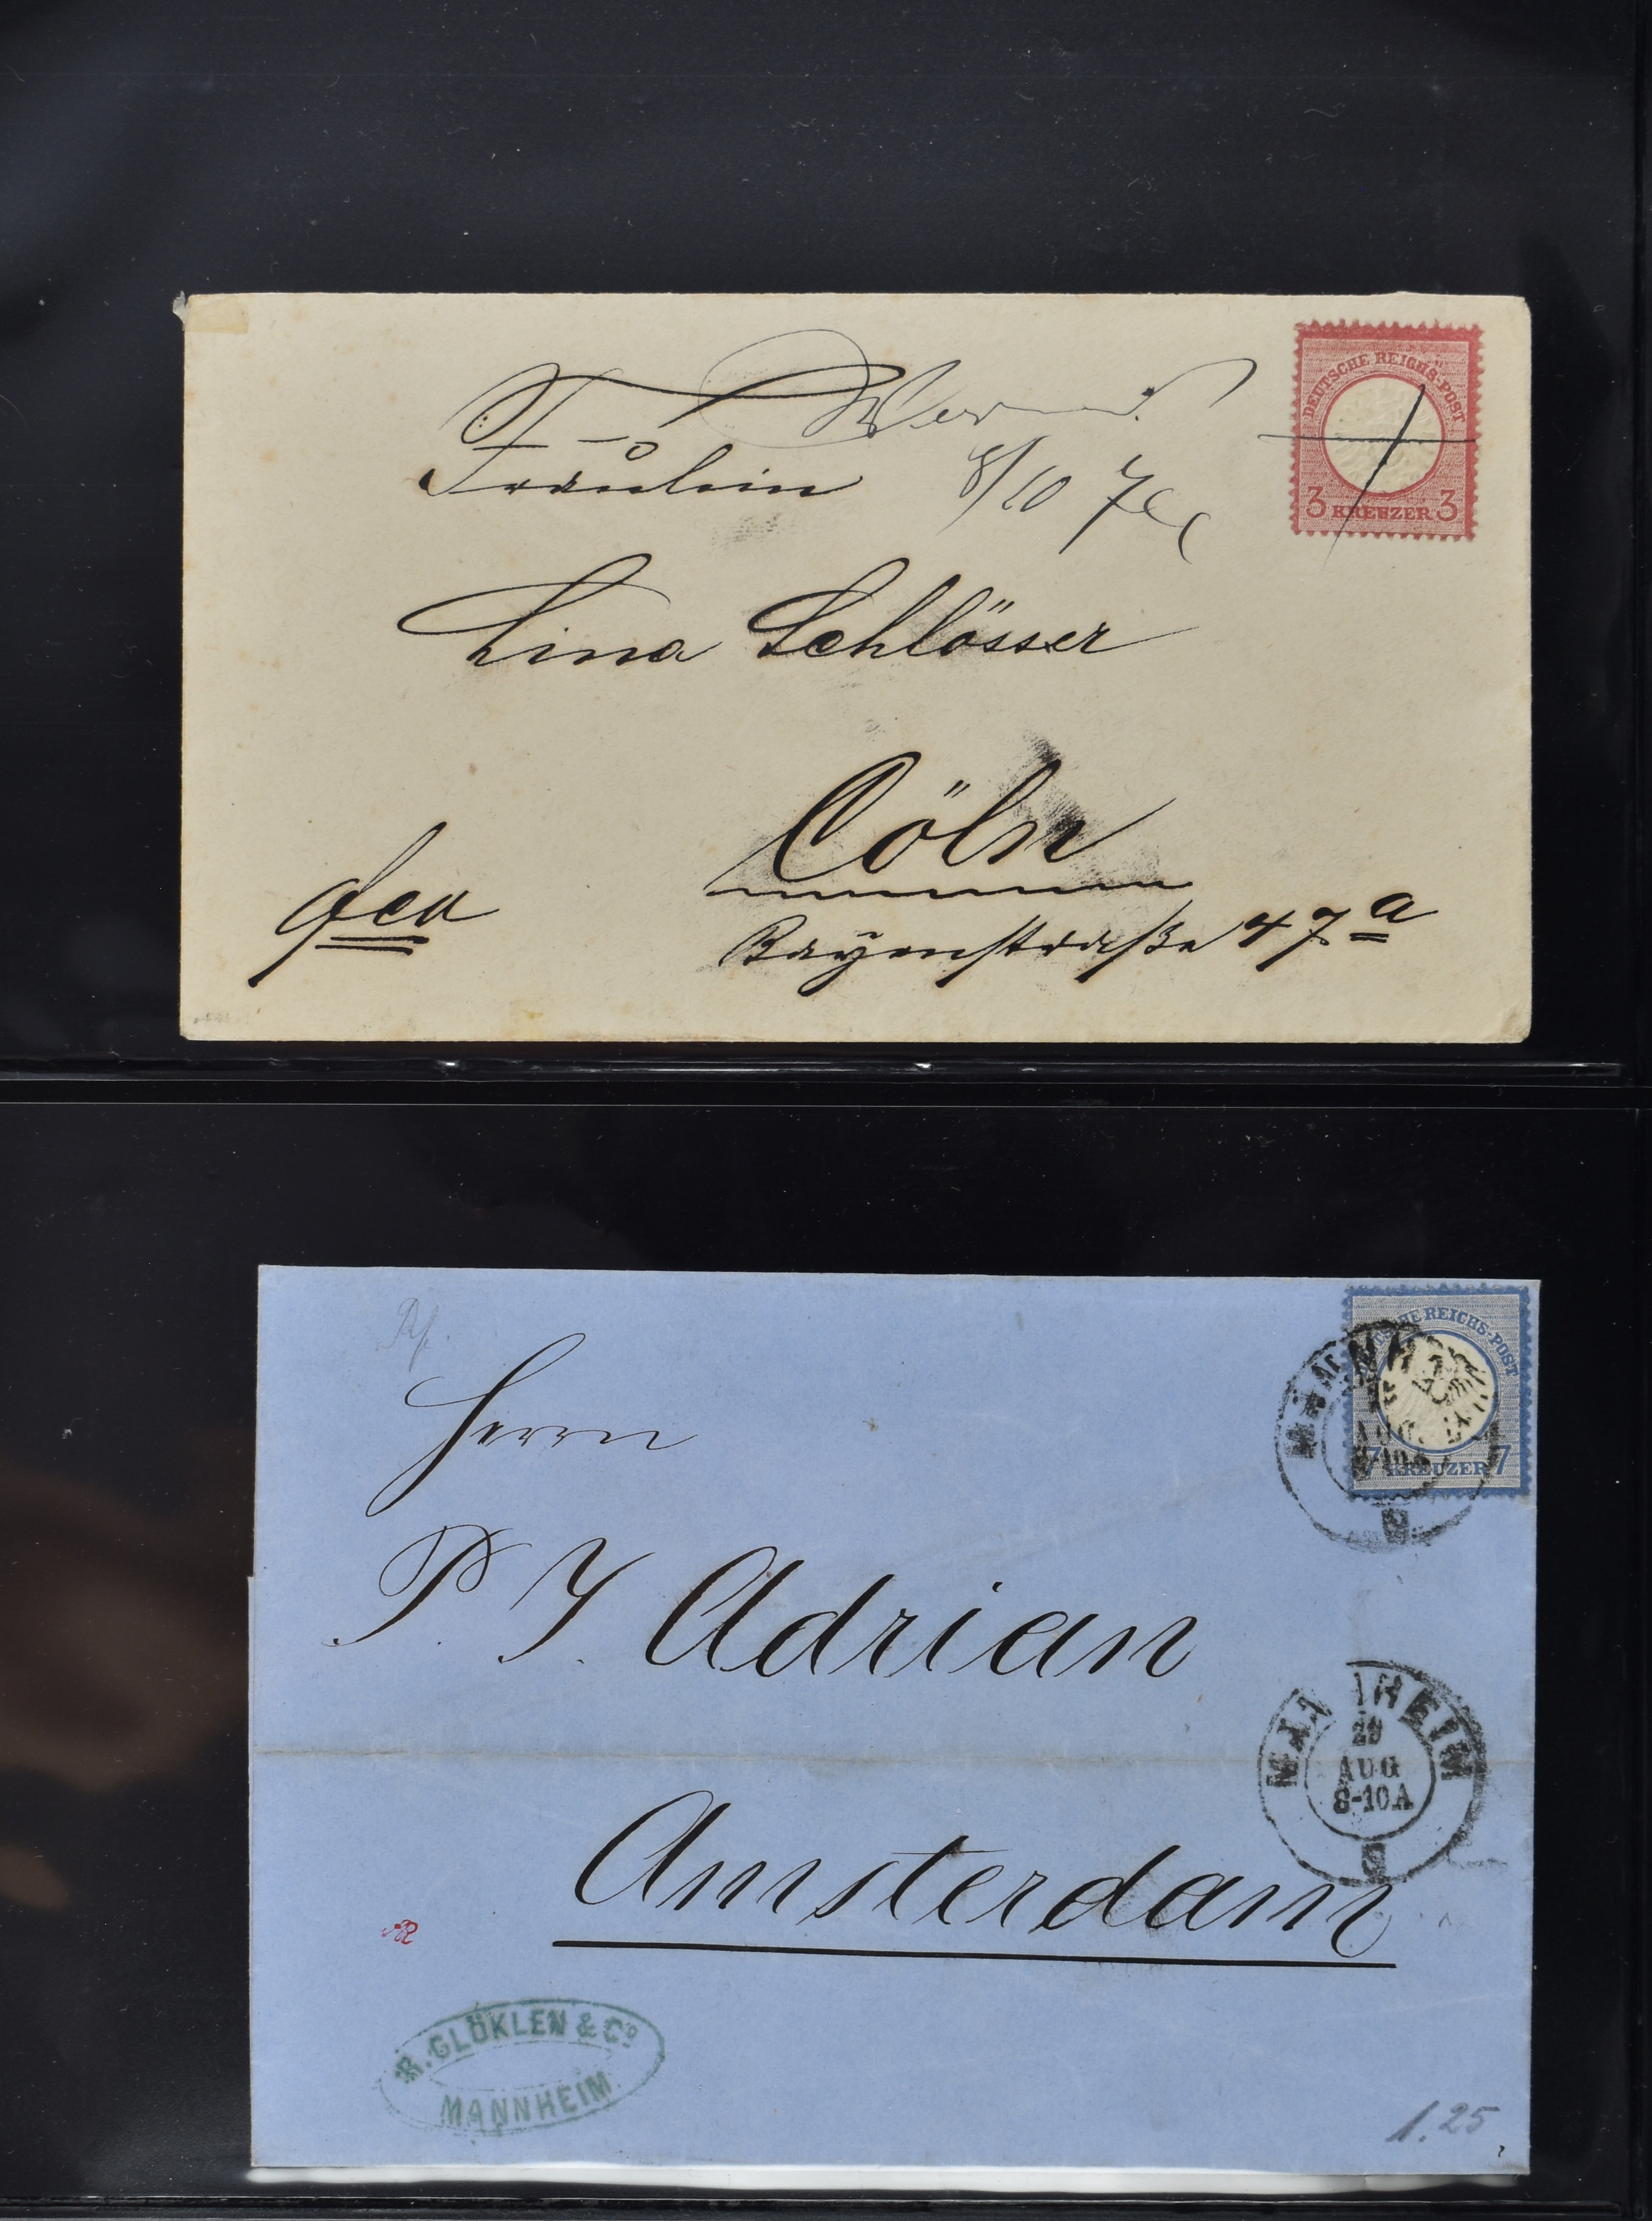 DEUTSCHE REICHS-POST
3 KREUZER 3
Fräulein
8/10 7
Lina Schlösser
Cöln
Bayenstraße 47a
REICHS-POST
7 KREUZER 7
Herrn
P. J. Adrian
MANNHEIM
29
AUG
8-10A
Amsterdam
R. GLÖKLEN & Co
MANNHEIM
1.25